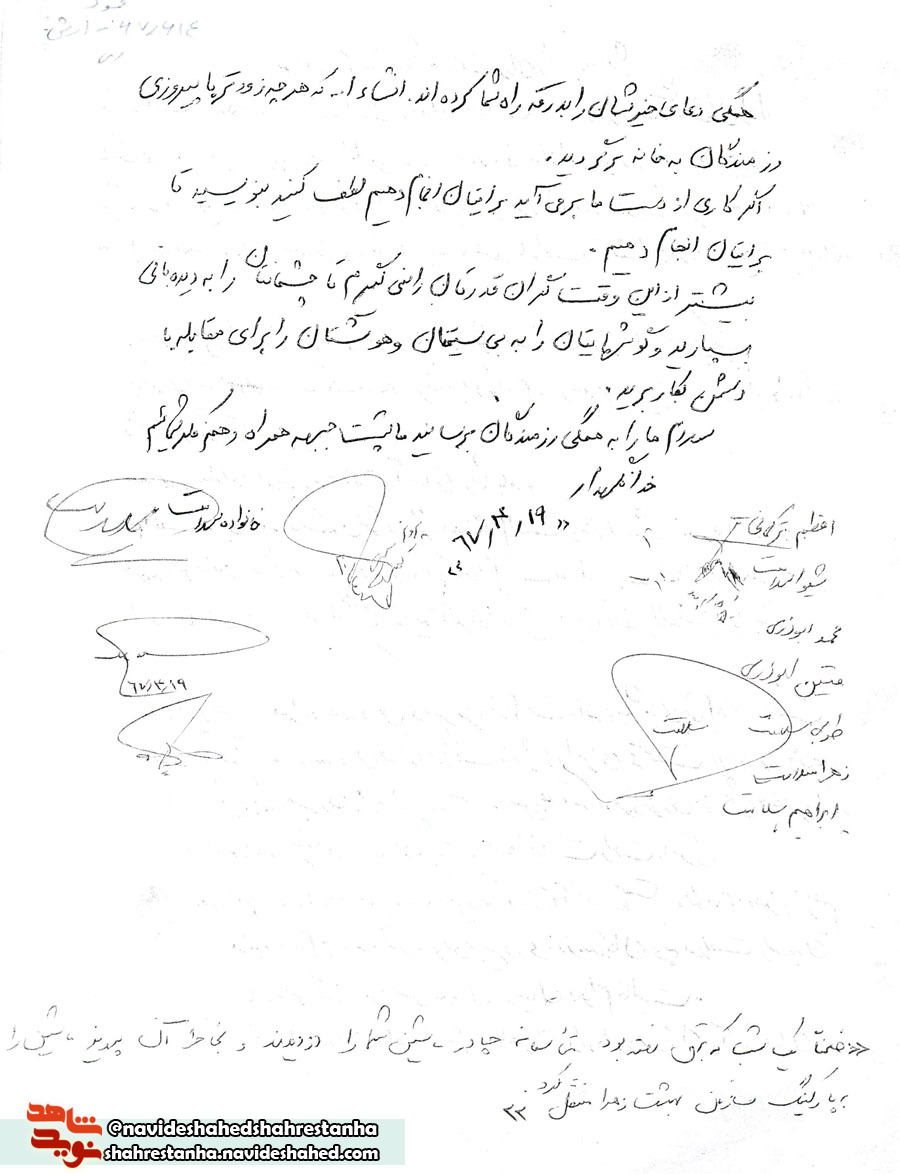 همگی دعای خیرشان را بدرقه راه شما کرده اند. انشاء ا... که هر چه زودتر با پیروزی
رزمندگان به خانه برگردید.
اگر کاری از دست ما برمی آید برایتان انجام دهیم لطف کنید بنویسید تا
برایتان انجام دهیم.
بیشتر از این وقت گران قدرتان را نمی گیرم تا چشمانتان را به دیده بانی
بسپارید و گوشهایتان را به بی سیمتان و هوشتان را برای مقابله با
دشمن بکار برید.
سلام ما را به همگی رزمندگان برسانید ما پشت جبهه همراه و همفکر شمائیم
خدانگهدار
۶۷/۳/۱۹
خانواده سلامت
اعظم ترکمانی
شیوا سلامت
محمد ابوذری
متین ابوذری
طوبی سلامت
سلامت
زهرا سلامت
ابراهیم سلامت
۶۷/۳/۱۹
«ضمناً یک شب که برق رفته بود متأسفانه چادر ماشین شما را دزدیدند و بخاطر آن پدرم ماشین را
به پارکینگ سازمان بهشت زهرا منتقل کرد.»
نوید شاهد
@navideshahedshahrestanha
shahrestanha.navideshahed.com